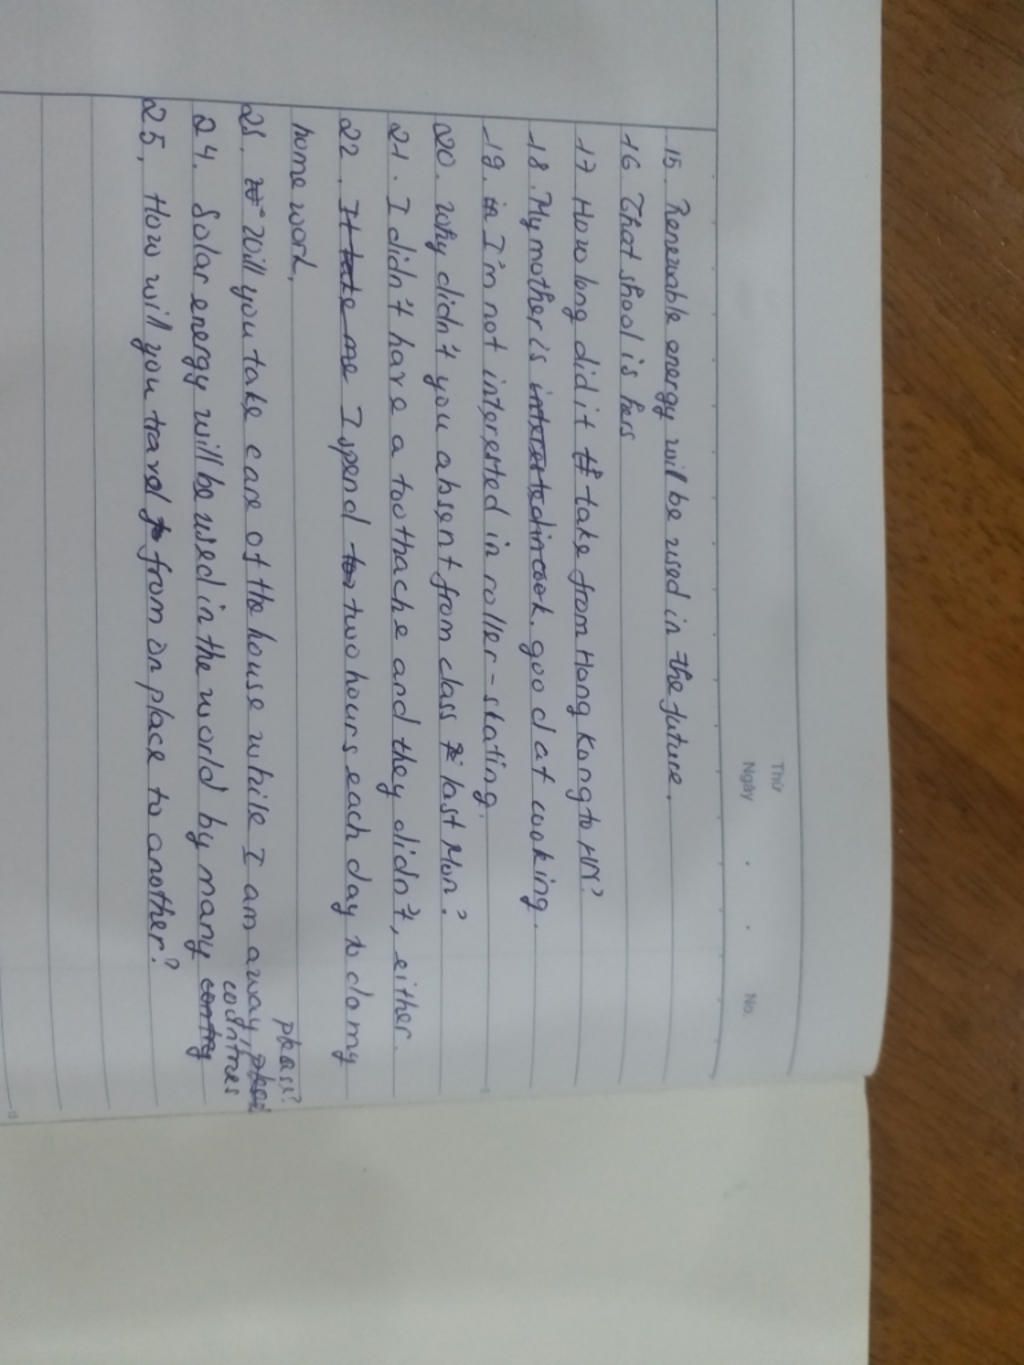 Thứ
Ngày . . No.
15. Renewable energy will be used in the future.
16 That shool is hers
17 How long did it take from Hong Kong to HN?
18. My mother is intersted in cook. good at cooking.
19. in I'm not interested in roller-skating.
20. Why didn't you absent from class last Mon?
21. I didn't have a toothache and they didn't, either.
22. It take me I spend two hours each day to do my
home work.
23. Will you take care of the house while I am away, please?
24. Solar energy will be used in the world by many contry countries
25. How will you travel from on place to another?